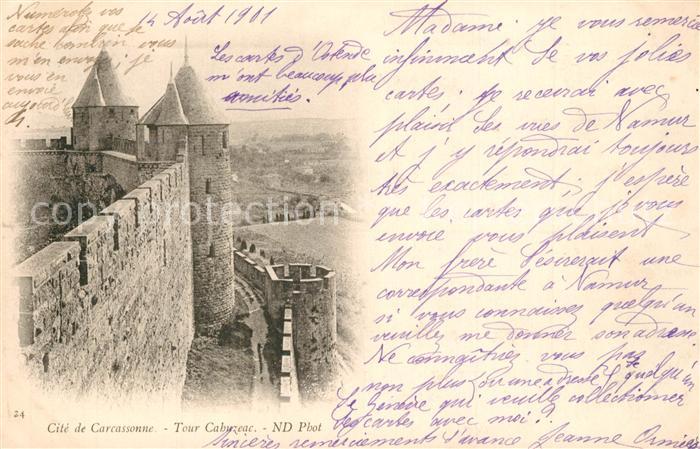 Numérotez vos
cartes afin que je
sache combien vous
m'en envoyez, je
vous en
envoie
aujourd'hui
14 Août 1901
Les cartes d'Ostende
m'ont beaucoup plu
amitiés.
Madame. je vous remercie
infiniment de vos jolies
cartes. Je recevrai avec
plaisir des vues de Namur
et j'y répondrai toujours
très exactement; j'espère
que les cartes que je vous
envoie vous plaisent.
Mon frère désirerait une
correspondante à Namur
si vous connaissez quelqu'un
veuillez me donner son adresse.
Ne connaîtriez vous pas
non plus une adresse de quelqu'un
de Genève qui veuille collectionner
des cartes avec moi?
Sincères remerciements d'avance Jeanne
24
Cité de Carcassonne. - Tour Cahuzac. - ND Phot
carte-postale